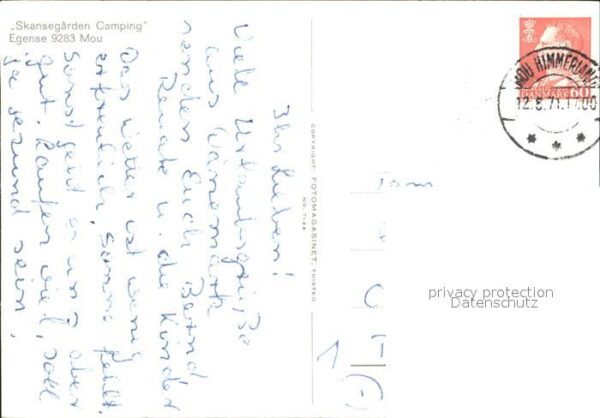 „Skansegården Camping"
Egense 9283 Mou
Ihr Lieben!
Viele Urlaubsgrüße
aus Dänemark
senden Euch Bernd
Renate u. die Kinder
Das Wetter ist wenig
erfreulich, Sonne fehlt.
Sonst geht es uns aber
gut. Laufen viel, soll
ja gesund sein.
COPYRIGHT: FOTOMAGASINET, THISTED
MOU HIMMERLAND
12.8.71.17.00
DANMARK 60
Fam
privacy protection
Datenschutz